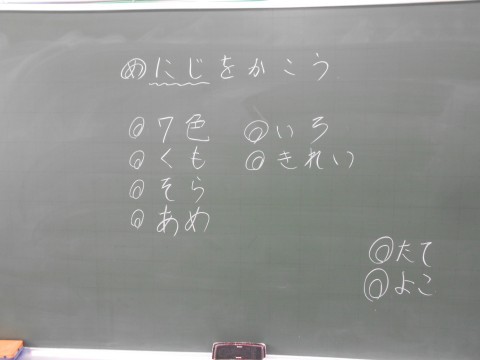 めにじをかこう
◎7色 ◎いろ
◎くも ◎きれい
◎そら
◎あめ
◎たて
◎よこ